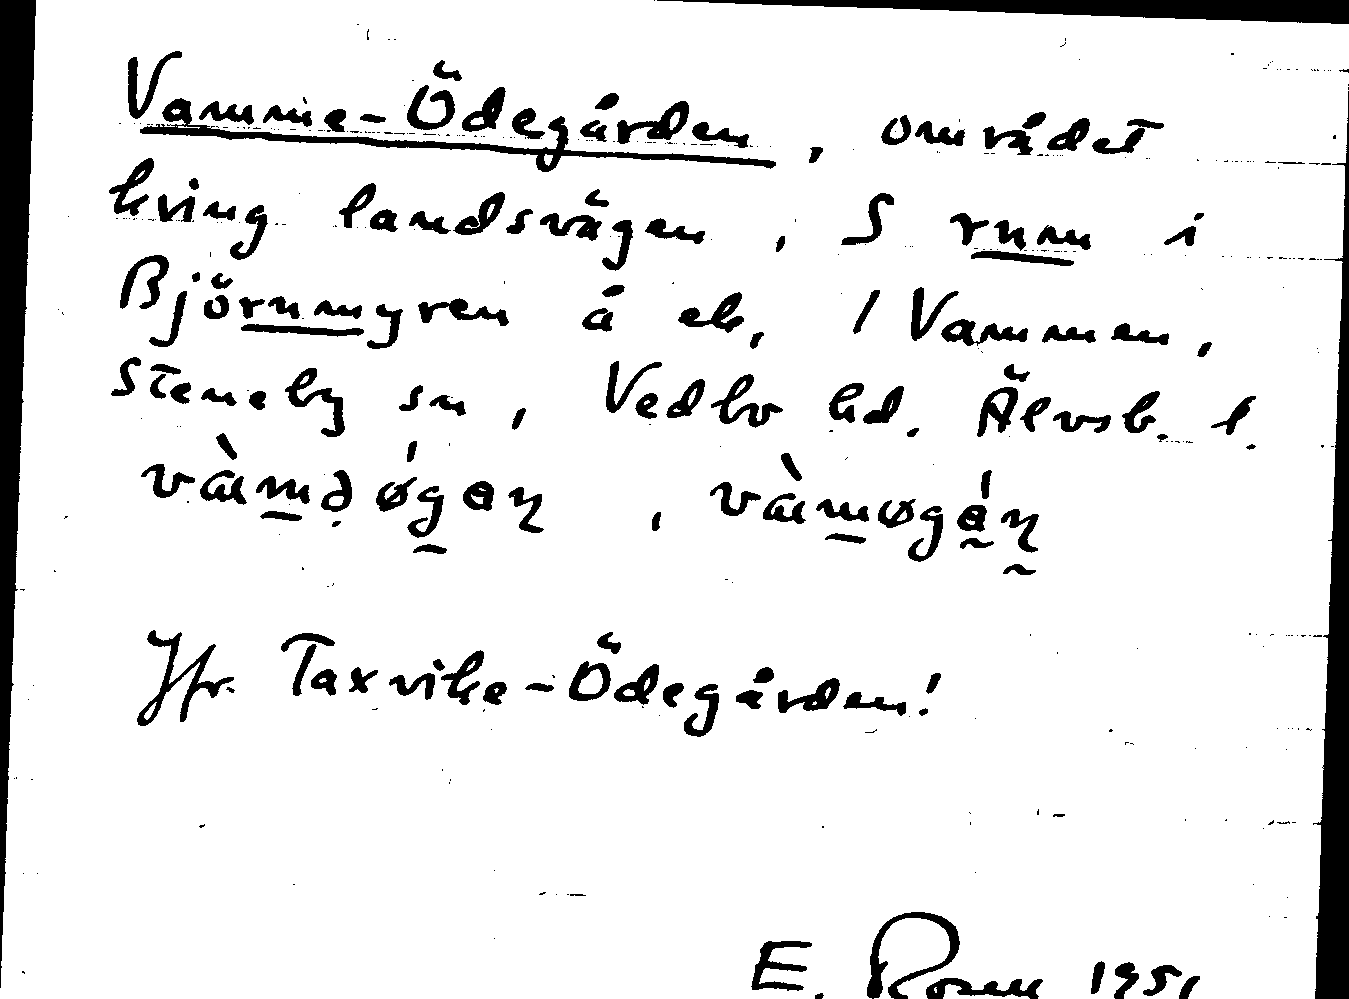 Vamme-Ödegården, området
kring landsvägen, S rnm i
Björnmyren å ek, / Vammen,
Steneby sn, Vedbo hd. Älvsb. l.
Jfr. Taxvike-Ödegården!
E. Rosen 1951